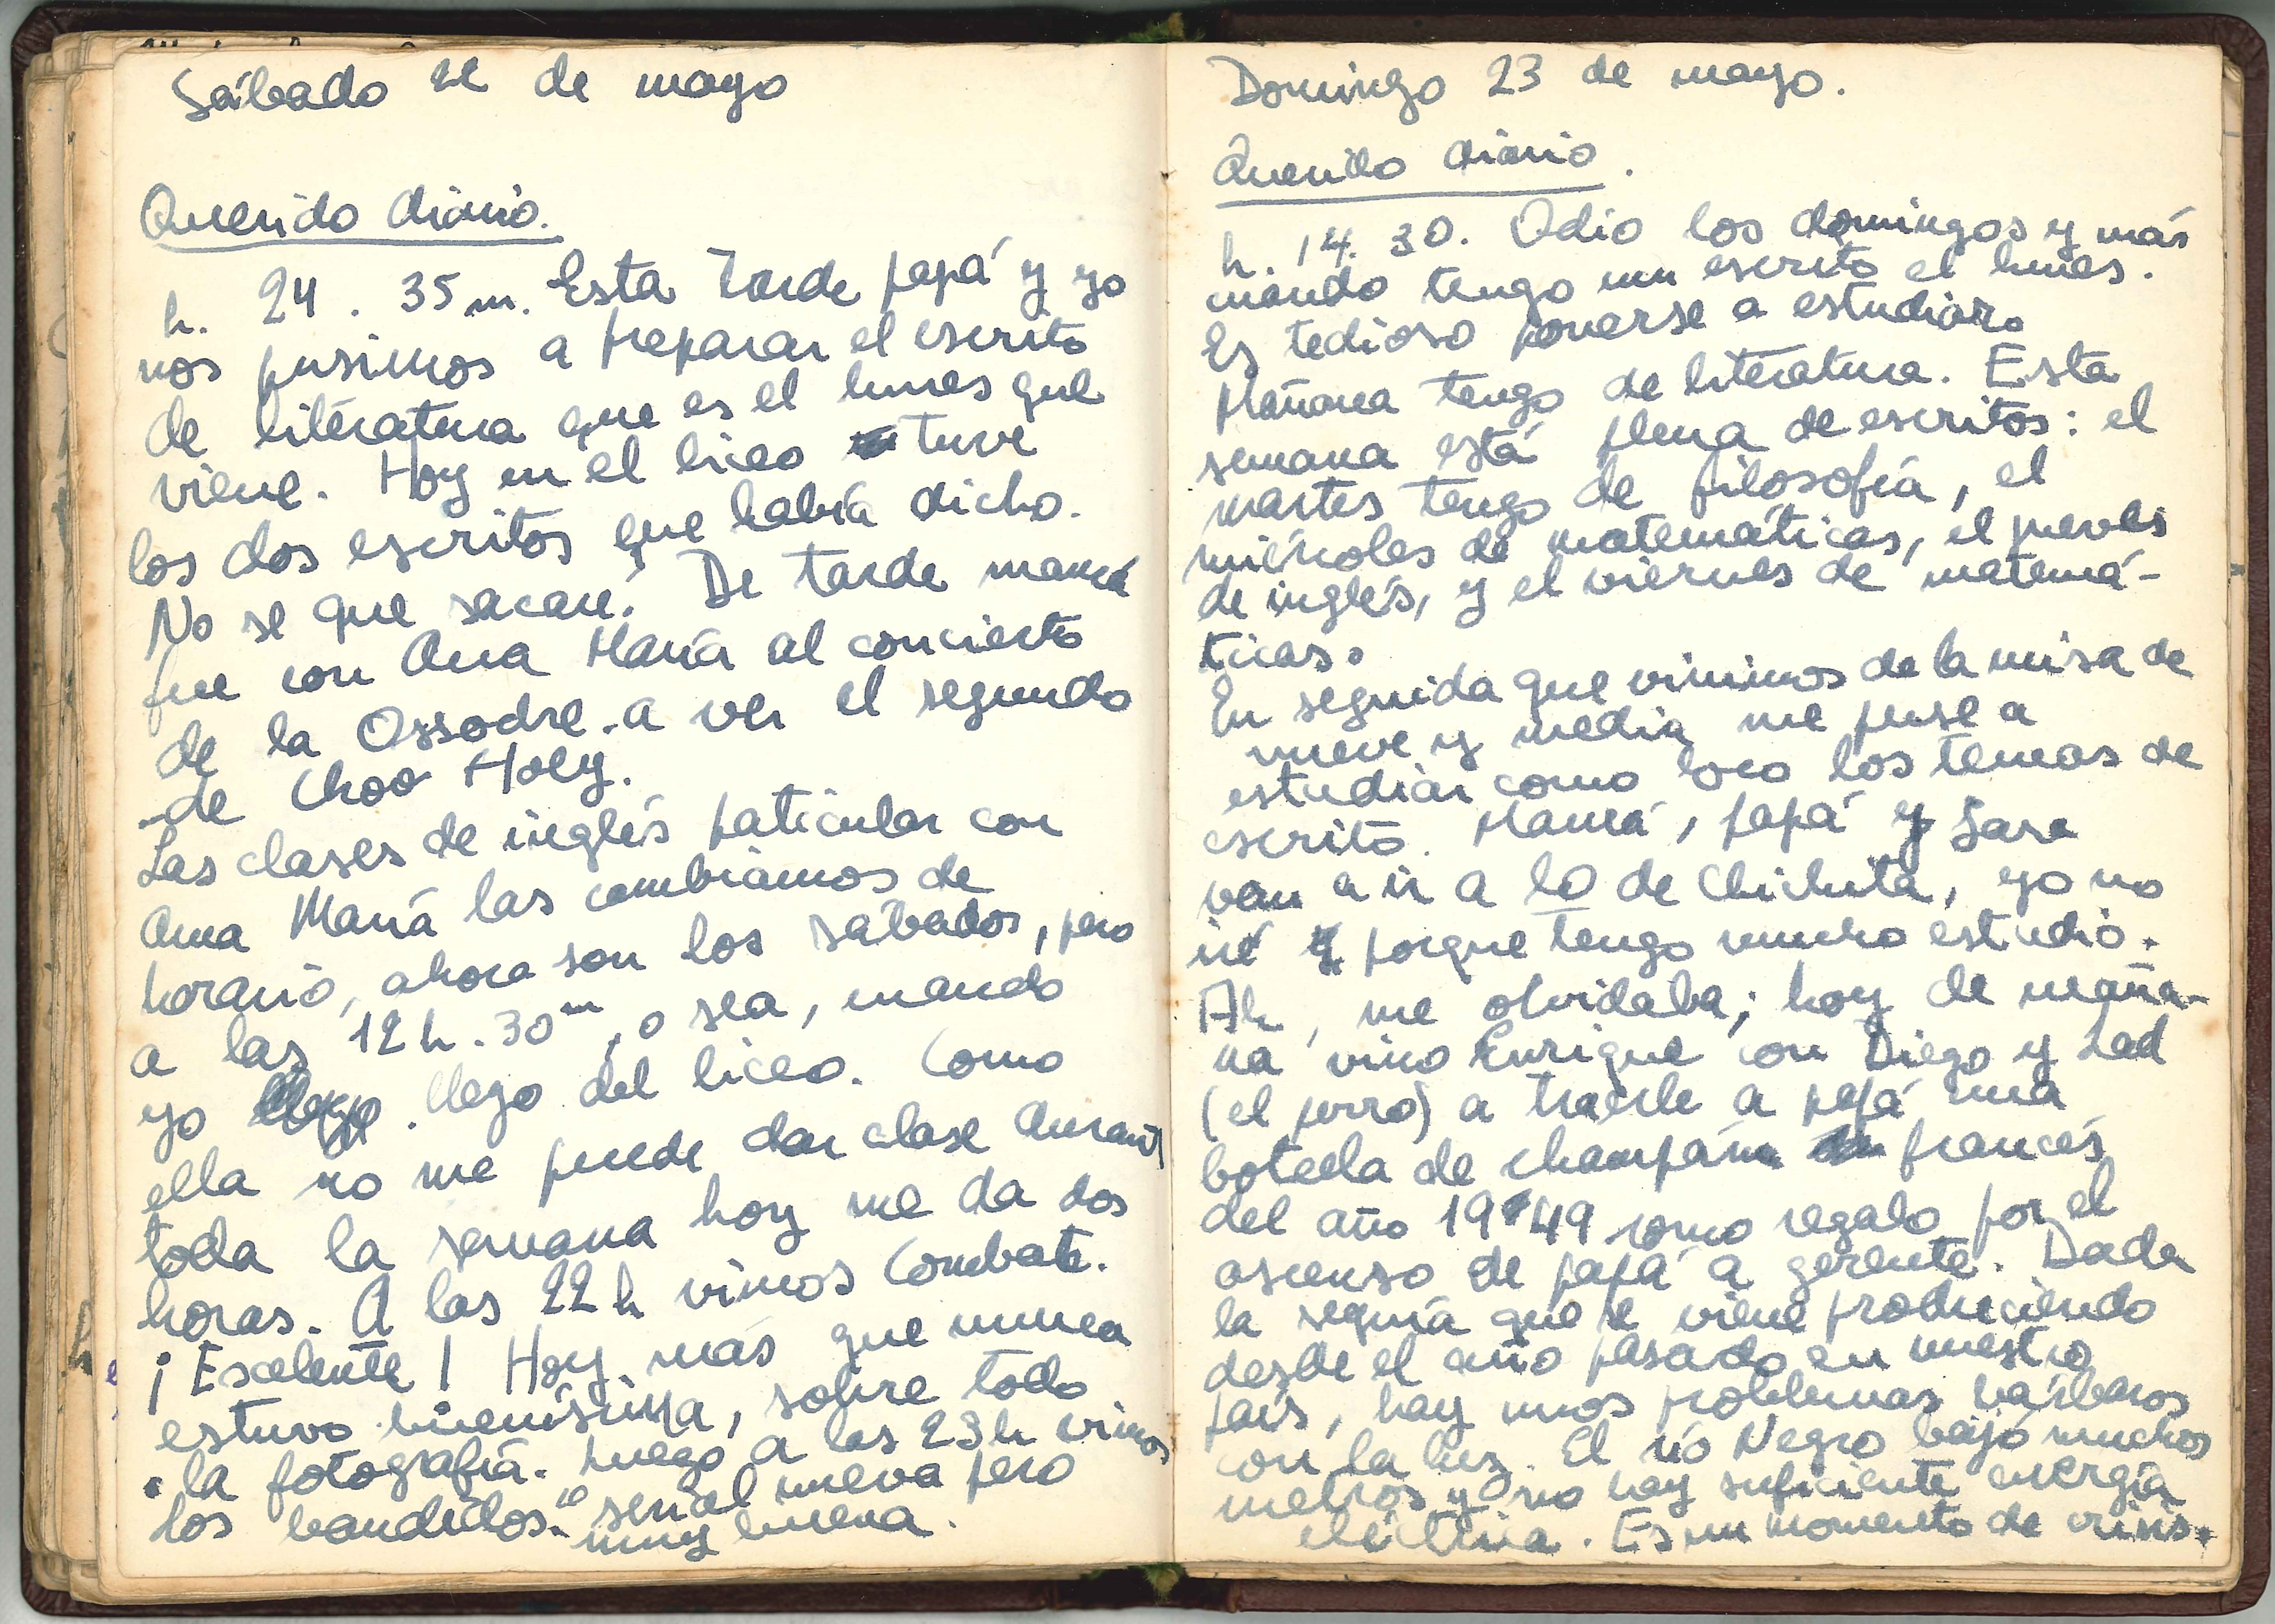 Sábado 22 de mayo
Querido diario.
h. 24. 35 m. Esta tarde papá y yo
nos pusimos a preparar el escrito
de literatura que es el lunes que
viene. Hoy en el liceo tuve
los dos escritos que había dicho.
No se que sacaré. De tarde mamá
fue con Ana María al concierto
de la Ossodre a ver el segundo
de Choo Hoey.
Las clases de inglés paticular con
Ana María las cambiamos de
horario, ahora son los sábados, pero
a las 12 h. 30 m, o sea, cuando
yo llego llego del liceo. Como
ella no me puede dar clase durante
toda la semana hoy me da dos
horas. A las 22 h vimos Combate.
¡Escelente! Hoy más que nunca
estuvo buenísima, sobre todo
la fotografía. Luego a las 23 h vimos
los bandidos. serial nueva pero
muy buena.
Domingo 23 de mayo.
Querido diario.
h. 14. 30. Odio los domingos y más
cuando tengo un escrito el lunes.
Es tedioso ponerse a estudiar.
Mañana tengo de literatura. Esta
semana está plena de escritos: el
martes tengo de filosofía, el
miércoles de matemáticas, el jueves
de inglés, y el viernes de matemá-
ticas.
En seguida que vinimos de la misa de
nueve y media me puse a
estudiar como loco los temas de
escrito. Mamá, papá y Sara
van a ir a lo de Chichita, yo no
iré porque tengo mucho estudio.
Ah, me olvidaba; hoy de maña-
na vino Enrique con Diego y Lad
(el perro) a traerle a papá una
botella de champán francés
del año 1949 como regalo por el
ascenso de papá a gerente. Dada
la sequía que se viene produciendo
desde el año pasado en nuestro
país, hay unos problemas bárbaros
con la luz. El río Negro bajó muchos
metros y no hay suficiente energía
eléctrica. Es un momento de crisis.